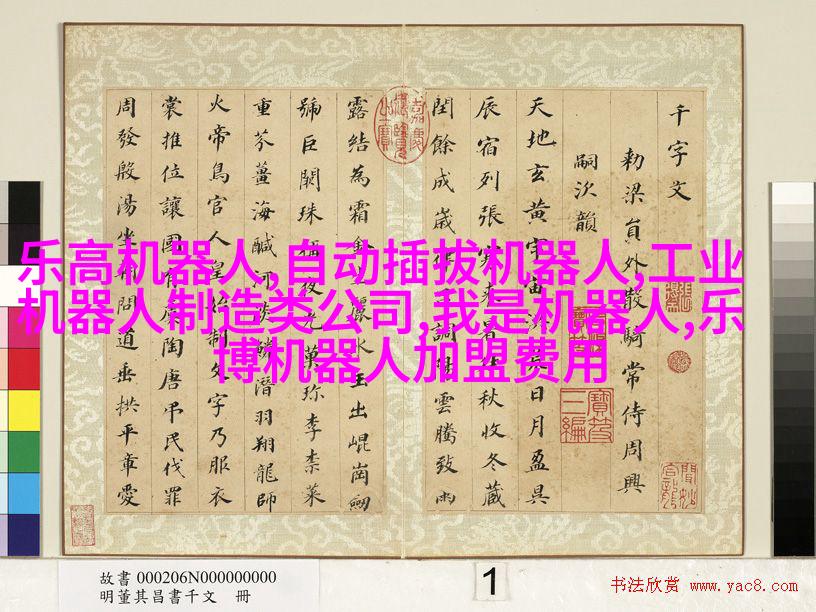 千字文
勅梁員外散騎常侍周興
嗣次韻
天地玄黃宇宙洪荒日月盈昃
辰宿列張寒來暑往秋收冬藏
閏餘成歲律呂調陽雲騰致雨
露結為霜金生麗水玉出崐崗劒
號巨闕珠稱夜光菓珍李柰菜
重芥薑海鹹河淡鱗潛羽翔龍師
火帝鳥官人皇始制文字乃服衣
裳推位讓國有虞陶唐弔民伐罪
周發殷湯坐朝問道垂拱平章愛
寶笈三編
乐高机器人,自动插拔机器人,工业
机器人制造类公司,我是机器人,乐
博机器人加盟费用
故書 000206N000000000
明董其昌書千文 冊
1
书法欣赏 www.yac8.com